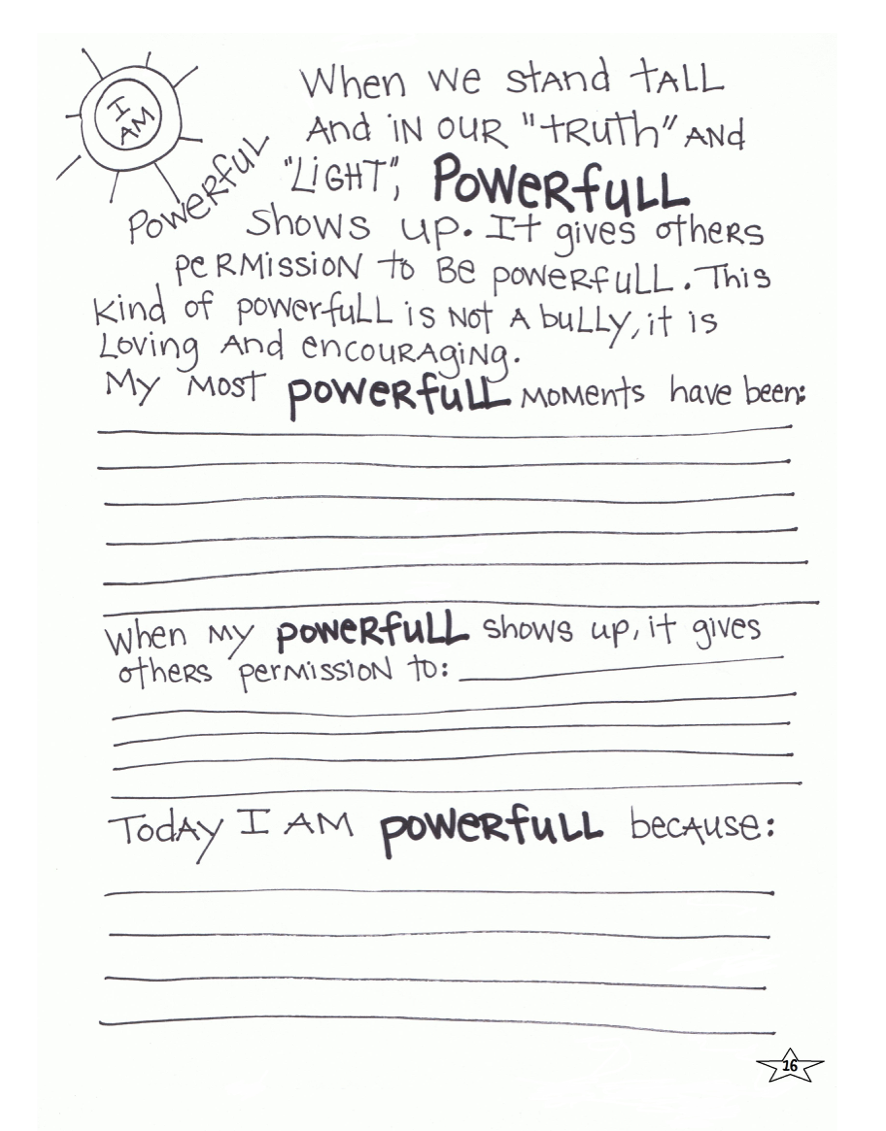 I
AM
POWERFUL
When we stand tall
And in our "truth" and
"Light", Powerfull
shows up. It gives others
permission to be powerfull. This
kind of powerfull is not a bully, it is
loving and encouraging.
My most powerfull moments have been:
When my powerfull shows up, it gives
others permission to:
Today I AM powerfull because:
16